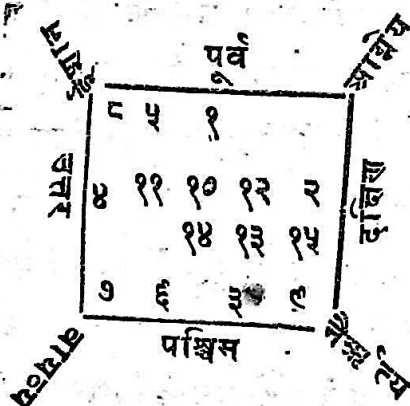 ईशान
पूर्व
आग्नेय
८ ५ १
उत्तर
४ ११ १० १२ २
दक्षिण
१४ १३ १५
७ ६ ३ ९
वायव्य
पश्चिम
नैर्ऋत्य